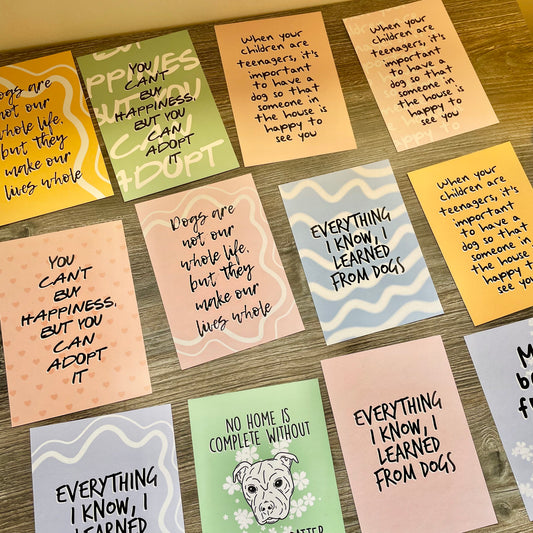 Dogs are
not our
whole life,
but they
make our
lives whole
YOU
CAN'T BUY
HAPPINESS,
BUT YOU
CAN
ADOPT
IT
When your
children are
teenagers, it's
important
to have a
dog so that
someone in
the house is
happy to
see you
When your
children are
teenagers, it's
important
to have a
dog so that
someone in
the house is
happy to
see you
YOU
CAN'T
BUY
HAPPINESS,
BUT YOU
CAN
ADOPT
IT
Dogs are
not our
whole life,
but they
make our
lives whole
EVERYTHING
I KNOW, I
LEARNED
FROM DOGS
When your
children are
teenagers, it's
important
to have a
dog so that
someone in
the house is
happy to
see you
EVERYTHING
I KNOW, I
LEARNED
NO HOME IS
COMPLETE WITHOUT
EVERYTHING
I KNOW, I
LEARNED
FROM DOGS